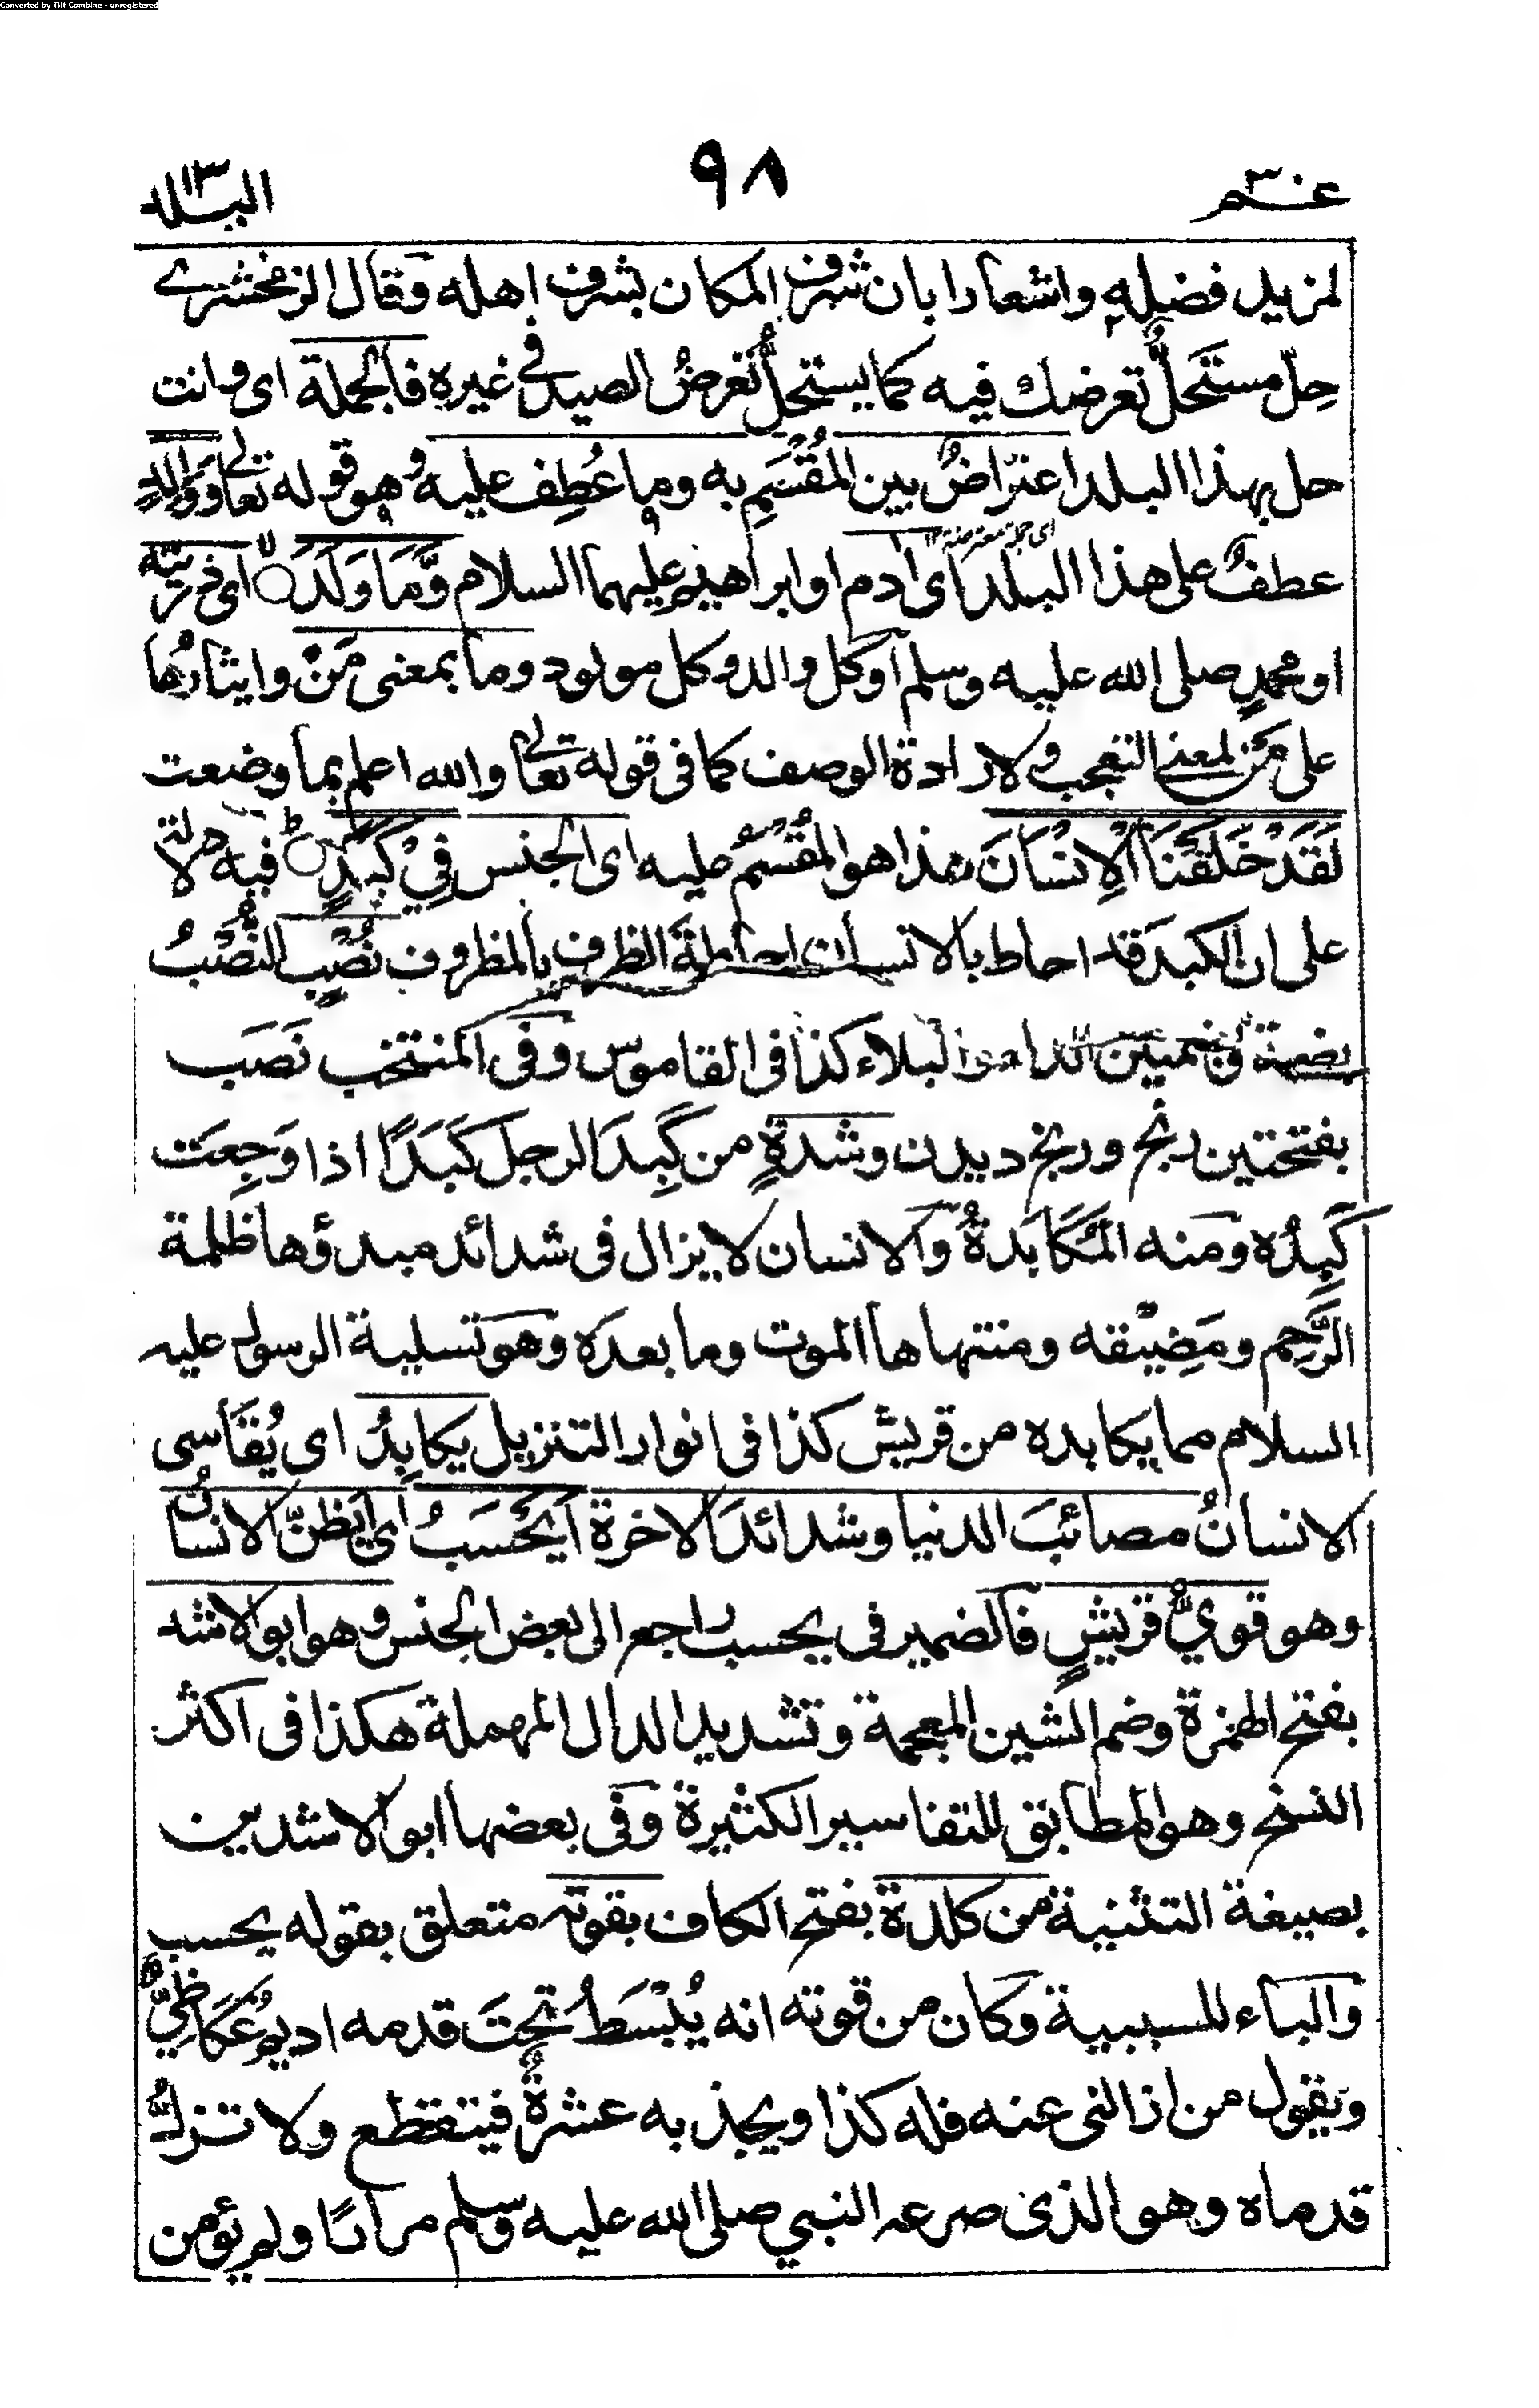 Converted by Tiff Combine - unregistered
عم ٣٠
٩٨
البلد
لمزيد فضله واشعارا بان شرف المكان بشرف اهله وقال الزمخشرے
حِلّ مستَحَلٌّ تعرضك فيه كما يستحلُّ تعرضُ الصيد في غيره فالجملة اى وانت
حل بهذا البلد اعتراضٌ بين المُقْسَمِ به وما عُطِف عليه وهو قوله تعالى وَوَالِدٍ
عطفٌ على هذا البلد اى ادم او ابراهيم عليهما السلام وَّمَا وَلَدَ اى ذريته
او محمدٍ صلى الله عليه وسلم او كل والد وكل مولود وما بمعنى مَنْ وايثارُها
على مَن لمعنى التعجب ولارادة الوصف كما فى قوله تعالى والله اعلم بما وضعت
لَقَدْ خَلَقْنَا الْاِنْسَانَ هذا هو المُقْسَمُ عليه اى الجنس فِيْ كَبَدٍ فيه دلالة
على ان الكبد قد احاط بالانسان احاطةَ الظرف بالمظروف نُصْبٍ النُّصْبُ
بضمة وضمتين الداء والبلاء كذا فى القاموس وفى المنتخب نَصَب
بفتحتين رنج ورنج ديدن وشدةٍ من كَبِدَ الرجل كَبَدًا اذا وَجِعَت
كَبِدُه ومنه المُكَابَدةُ والانسان لا يزال فى شدائد مبدؤها ظلمة
الرَّحِم ومَضِيْقه ومنتهاها الموت وما بعده وهو تسلية الرسول عليه
السلام مما يكابده من قريش كذا فى انوار التنزيل يكابِدُ اى يُقَاسى
الانسانُ مصائبَ الدنيا وشدائدَ الاخرة اَيَحْسَبُ اى ايَظنّ الانسانُ
وهو قويُّ قريشٍ فالضمير فى يحسب راجع الى بعض الجنس وهو ابو الاشد
بفتح الهمزة وضم الشين المعجمة وتشديد الدال المهملة هكذا فى اكثر
النسخ وهو المطابق للتفاسير الكثيرة وفى بعضها ابو الاشدين
بصيغة التثنية من كلدة بفتح الكاف بقوته متعلق بقوله يحسب
والباء للسببية وكان من قوته انه يُبْسَطُ تحتَ قدمه اديم عُكَاظيٌّ
ويقول من ازالنى عنه فله كذا ويجذبه عشرةٌ فيتقطع ولا تزلُّ
قدماه وهو الذى صرعه النبي صلى الله عليه وسلم مرارًا ولم يؤمن